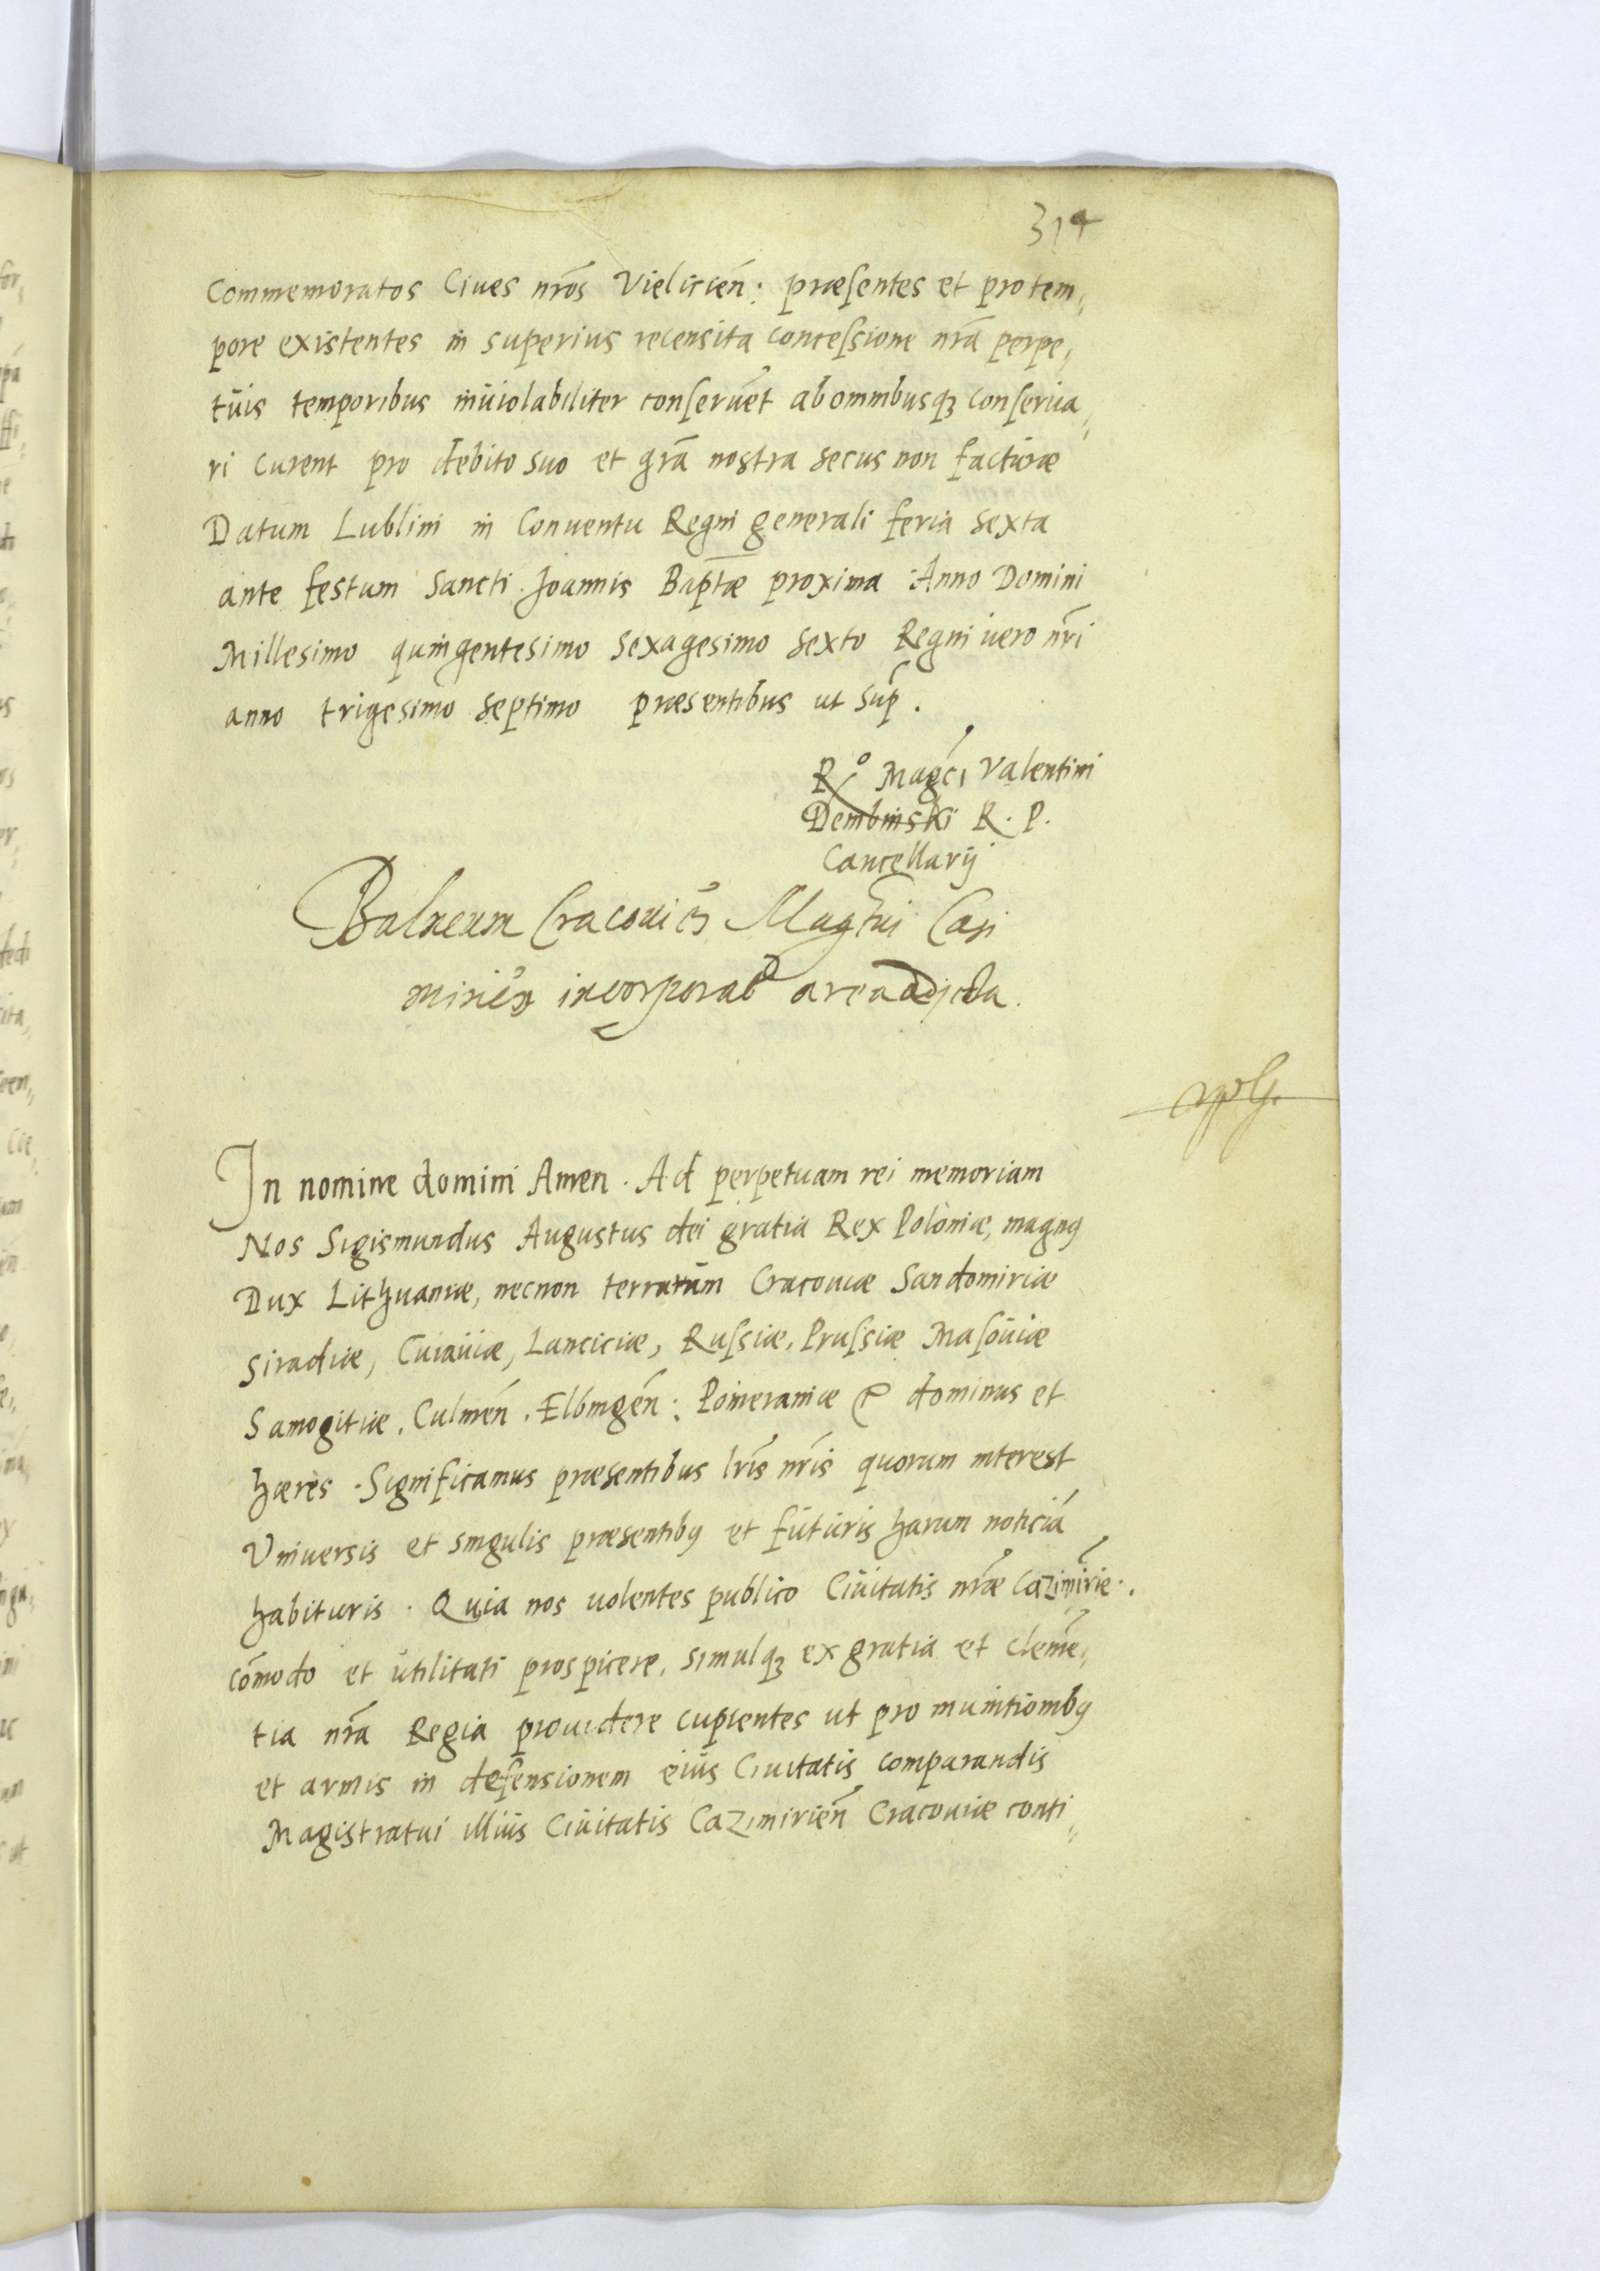 314
Commemoratos Ciues nr̃os Vielicień: præsentes et pro tem,,
pore existentes in superius recensita concessione nrã perpe,,
tuis temporibus inuiolabiliter conseruẽt ab omnibusq3 conserua,,
ri curent pro debito suo et grã nostra secus non facturæ
Datum Lublini in Conuentu Regni generali feria sexta
ante festum Sancti Joannis Bapt̃æ proxima Anno Domini
Millesimo quingentesimo sexagesimo sexto Regni uero nr̃i
anno trigesimo septimo præsentibus ut sup̃.
R° Magc̃i Valentini
Dembinski R. P.
Cancellarij
Balneum Cracouień Magr̃ui Casi
mirień incorporat arenadicta
In nomine domini Amen. Ad perpetuam rei memoriam
Nos Sigismundus Augustus dei gratia Rex Poloniæ, magnus
Dux Lithuaniæ, necnon terrarum Cracouiæ Sandomiriæ
Siradiæ, Cuiauiæ, Lanciciæ, Russiæ, Prussiæ Masouiæ
Samogitiæ, Culmeñ. Elbingeñ: Pomeraniæ & dominus et
hæres. Significamus præsentibus lr̃is nr̃is quorum interest
Vniuersis et singulis præsentibus et futuris harum noticiã
habituris. Quia nos uolentes publico Ciuitatis nr̃æ Cazimirie:.
cõmodo et utilitati prospicere, simulq3 ex gratia et cleme,,
tia nrã Regia prouidere cupientes ut pro munitionibus
et armis in defensionem eius Ciuitatis comparandis
Magistratui illius Ciuitatis Cazimirień Cracouiæ conti,,